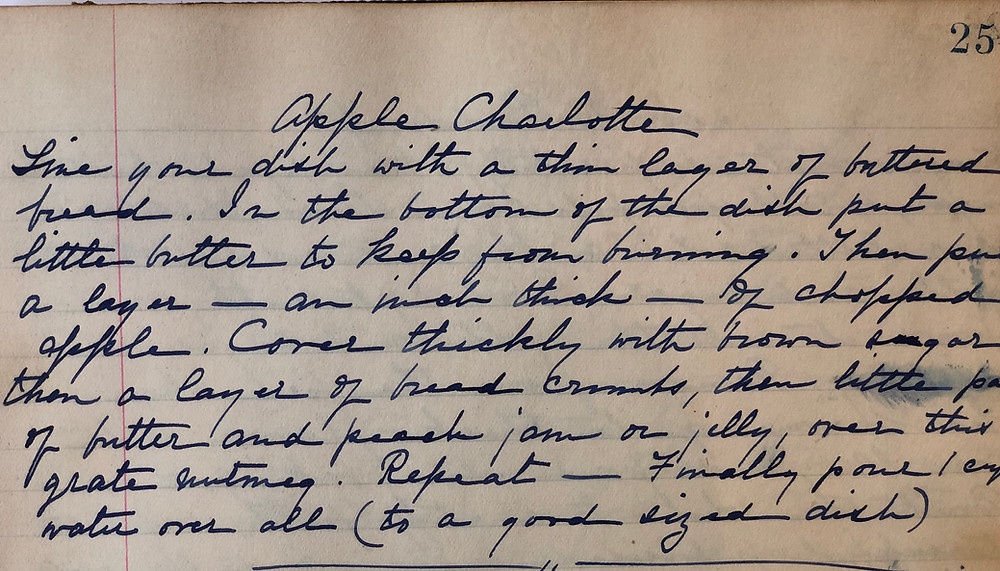 25
Apple Charlotte
Line your dish with a thin layer of buttered
bread. In the bottom of the dish put a
little butter to keep from burning. Then pu
a layer — an inch thick — of chopped
apple. Cover thickly with brown sugar
then a layer of bread crumbs, then little pa
of butter and peach jam or jelly, over this
grate nutmeg. Repeat — Finally pour 1 cup
water over all (to a good sized dish)